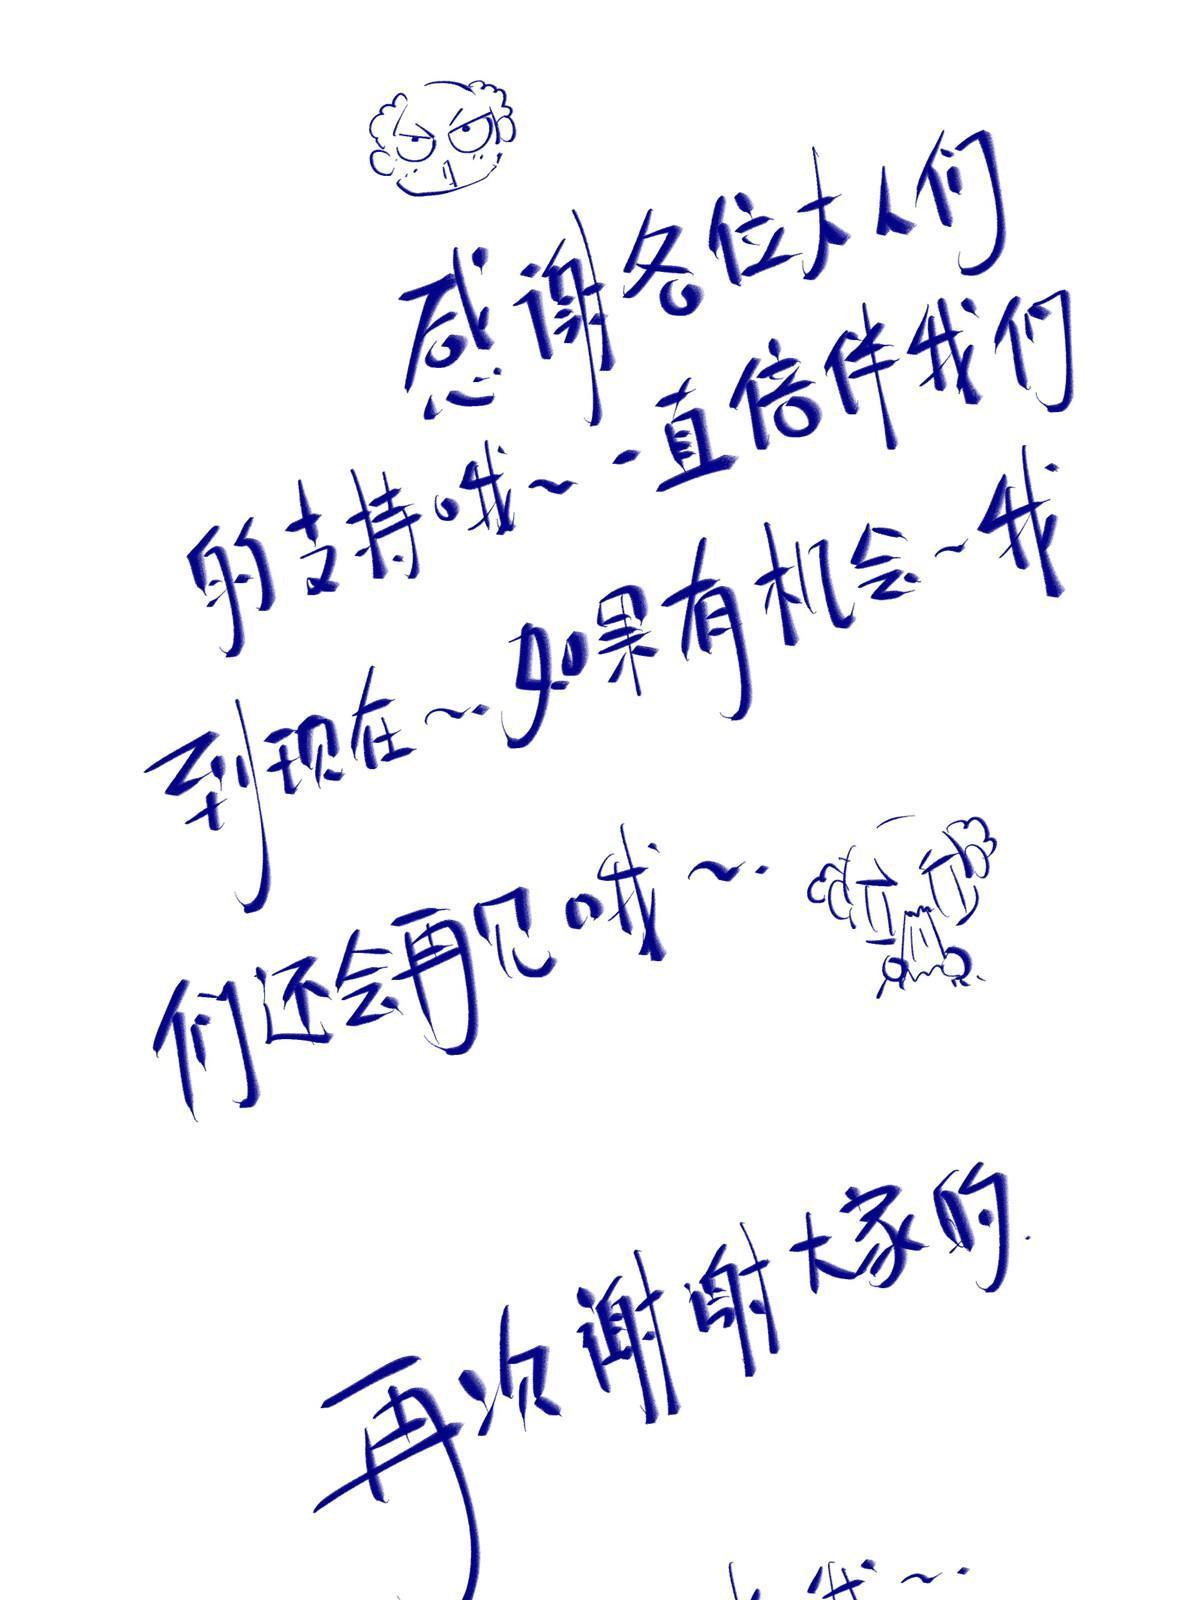 感谢各位大人们
的支持哦~一直倍伴我们
到现在~如果有机会~我
们还会再见哦~
再次谢谢大家的